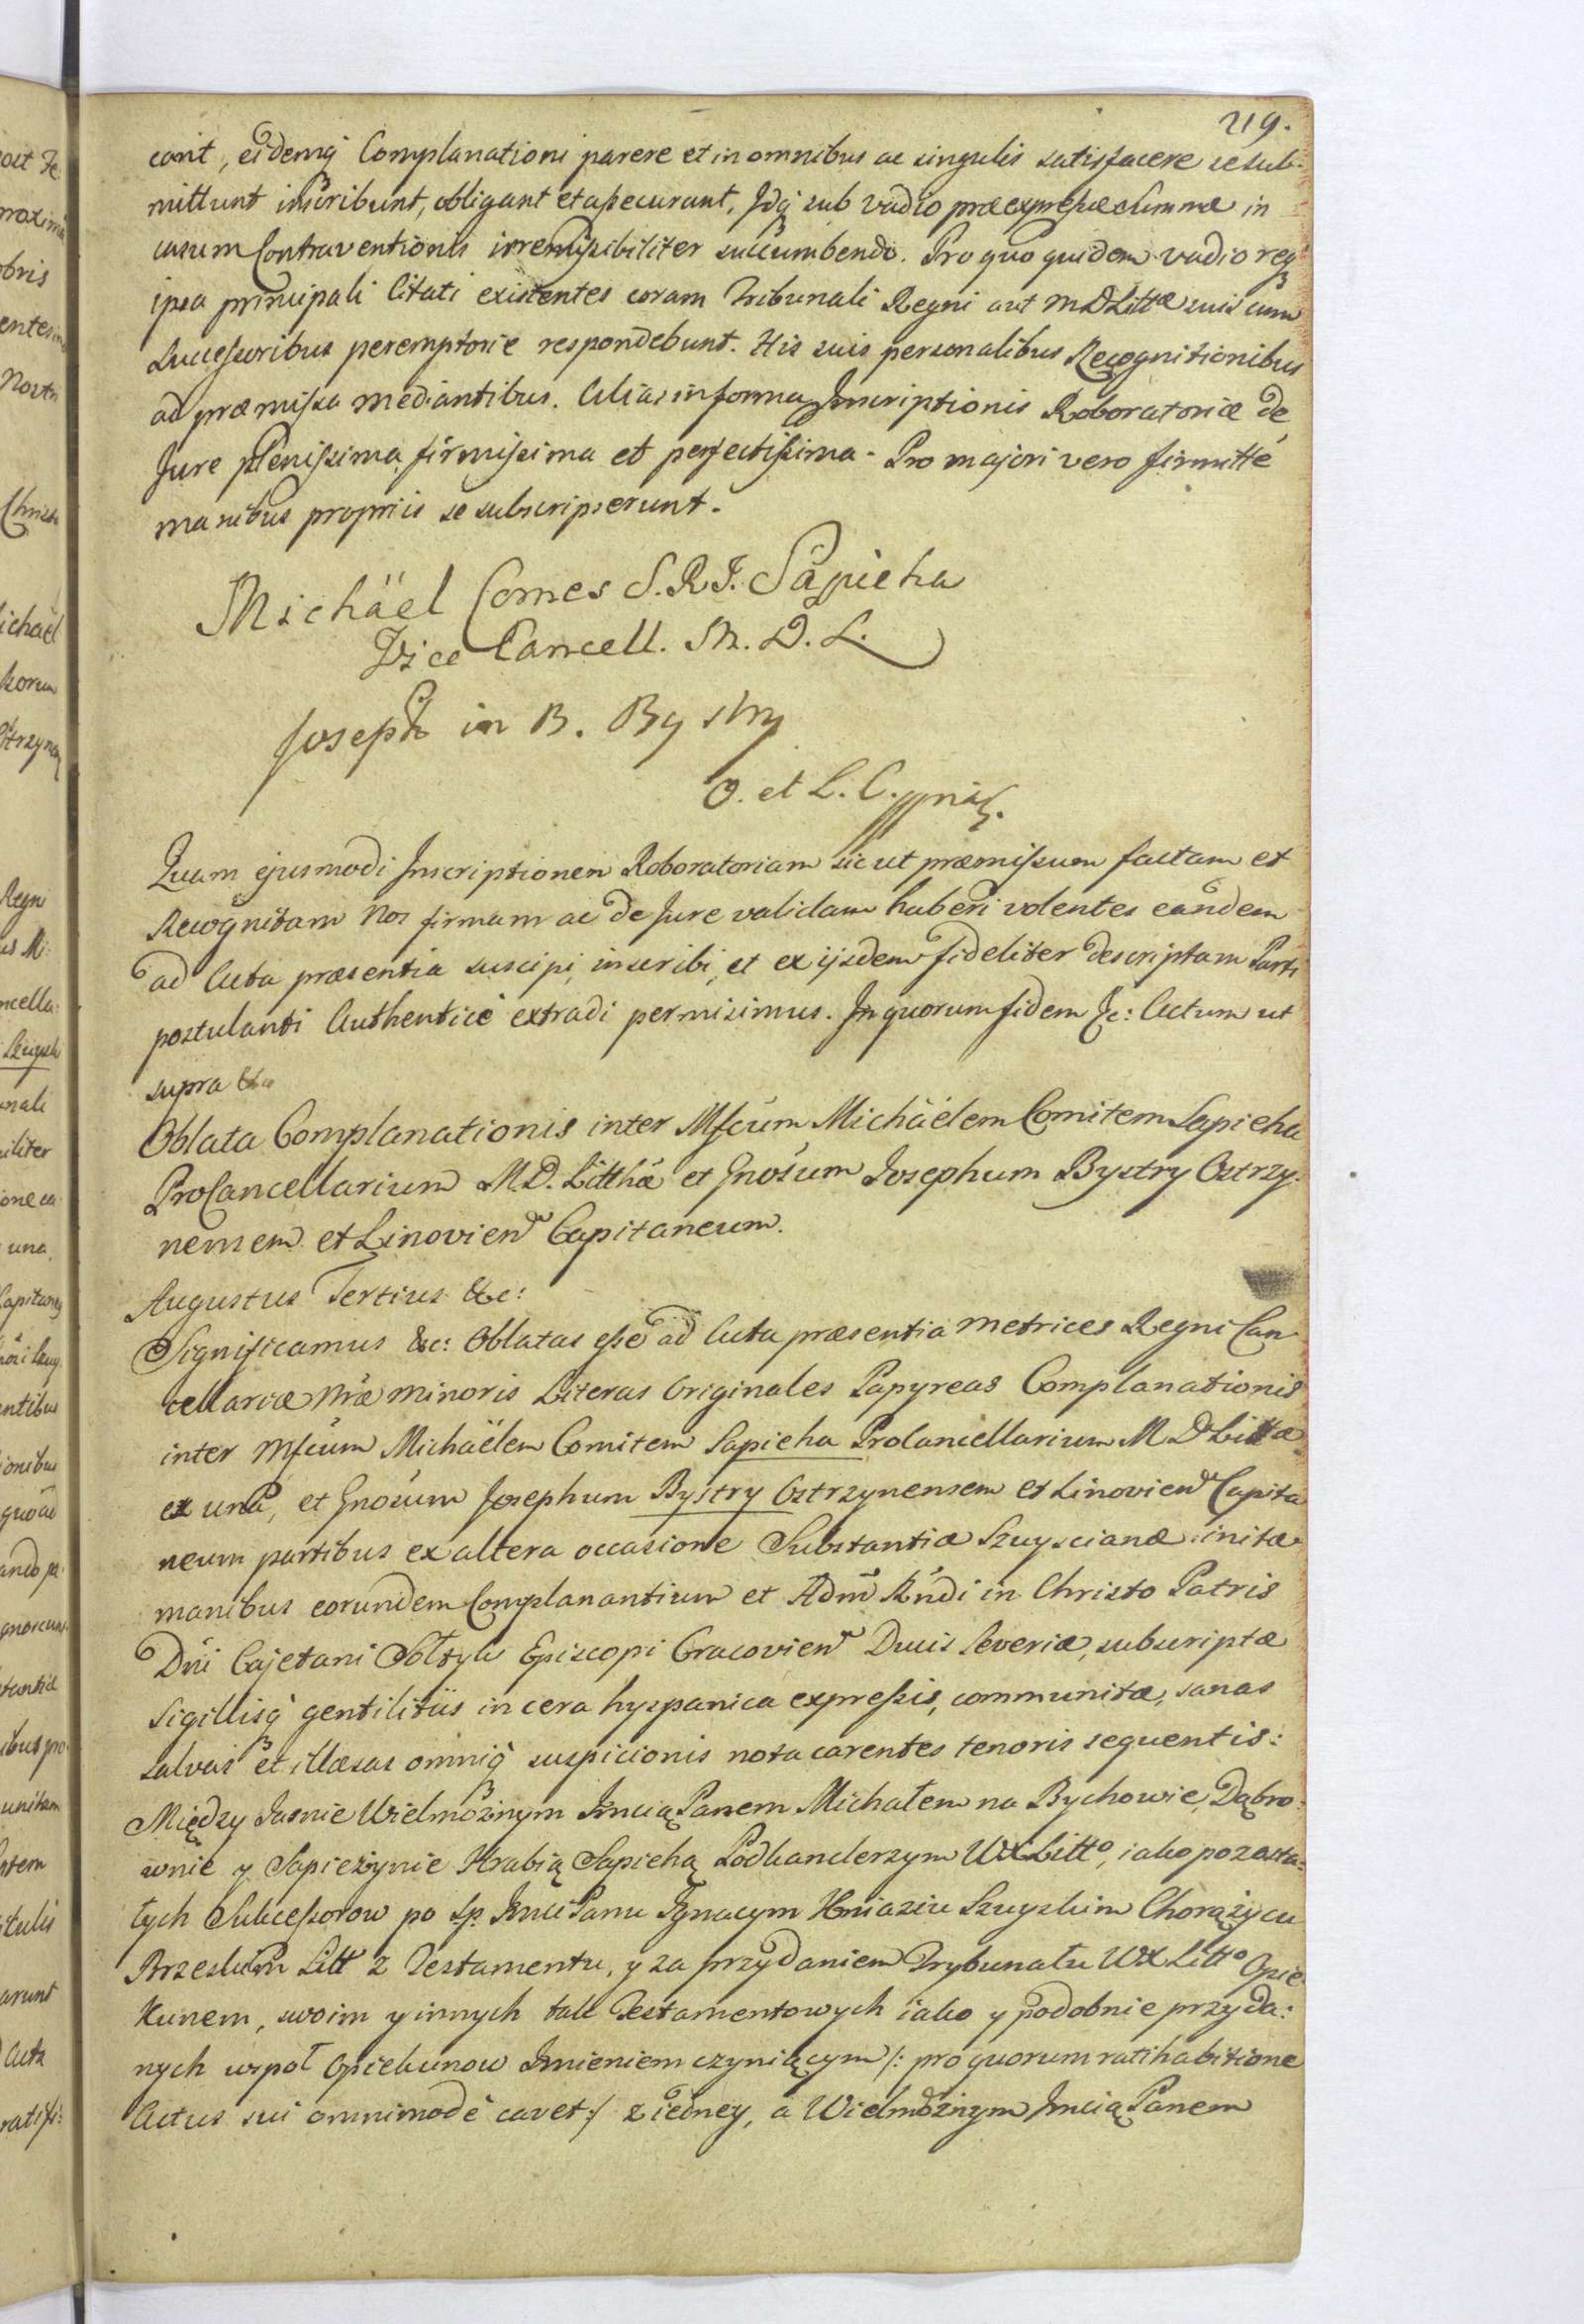 219.
cant, eidemq́ Complanationi parere et in omnibus ac singulis satisfacere se sub-
mittunt inscribunt, obligant et assecurant, Idq́ sub vadio præexpressæ Summæ in
casum Contraventionis irremissibiliter succumbendo. Pro quo quidem vadio req́
ipsa principali Citati existentes coram Tribunali Regni aut M D Littæ suis cum
Successoribus peremptorie respondebunt. His suis personalibus Recognitionibus
ad præmissa mediantibus. Alias in forma Inscriptionis Roboratoriæ de
Jure plenissima, firmissima et perfectissima. Pro majori vero firmitté
manibus propriis se subscripserunt.
Michäel Comes S. R I. Sapieha
Vice Cancell. M. D. L.
Joseph in B. Bystry
O. et L. C. mpr.
Quam ejusmodi Inscriptionem Roboratoriam sic ut præmissum factam et
Recognitam Nos firmam ac de Jure validam haberi volentes eandem
ad Acta præsentia suscipi, inscribi, et ex ijsdem fideliter descriptam Parti
postulanti Authenticè extradi permisimus. In quorum fidem &c: Actum ut
supra &a
Oblata Complanationis inter Mfcum Michäelem Comitem Sapieha
ProCancellarium M.D. Litthæ et Gnosum Josephum Bystry Ostrzy-
nensem et Linovien Capitaneum.
Augustus Tertius &c:
Significamus &c: Oblatas esse ad Acta præsentia Metrices Regni Can
cellariæ Nræ minoris Literas Originales Papyreas Complanationis
inter Mfcum Michäelem Comitem Sapieha ProCancellarium M D Littæ
ex una, et Gnosum Josephum Bystry Ostrzynensem et Linovien Capita
neum partibus ex altera occasione Substantiæ Szuyscianæ initæ
manibus eorundem Complanantium et Adm Rndi in Christo Patris
Dni Cajetani Sołtyk Episcopi Cracovien Ducis Severiæ, subscriptæ
Sigillisq́ gentilitiis in cera hyspanica expressis, communitæ, sanas
salvas et illæsas omniq́ suspicionis nota carentes tenoris sequentis:
Między Jasnie Wielmożnym Imcią Panem Michałem na Bychowie, Dąbro-
wnie y Sapieżynie Hrabią Sapiehą Podkanclerzym WXLitto, iako pozosta-
łych Sukcessorow po śp. Imci Panu Ignacym Kniaziu Szuyskim Chorążycu
Brzeskim Litt z Testamentu, y za przydaniem Trybunału WX Litto Opie
kunem, swoim y innych tak Testamentowych iako y podobnie przyda-
nych wspoł Opiekunow Imieniem czyniącym /: pro quorum ratihabitione
Actus sui omnimodè cavet :/ z iedney, a Wielmożnym Imcią Panem